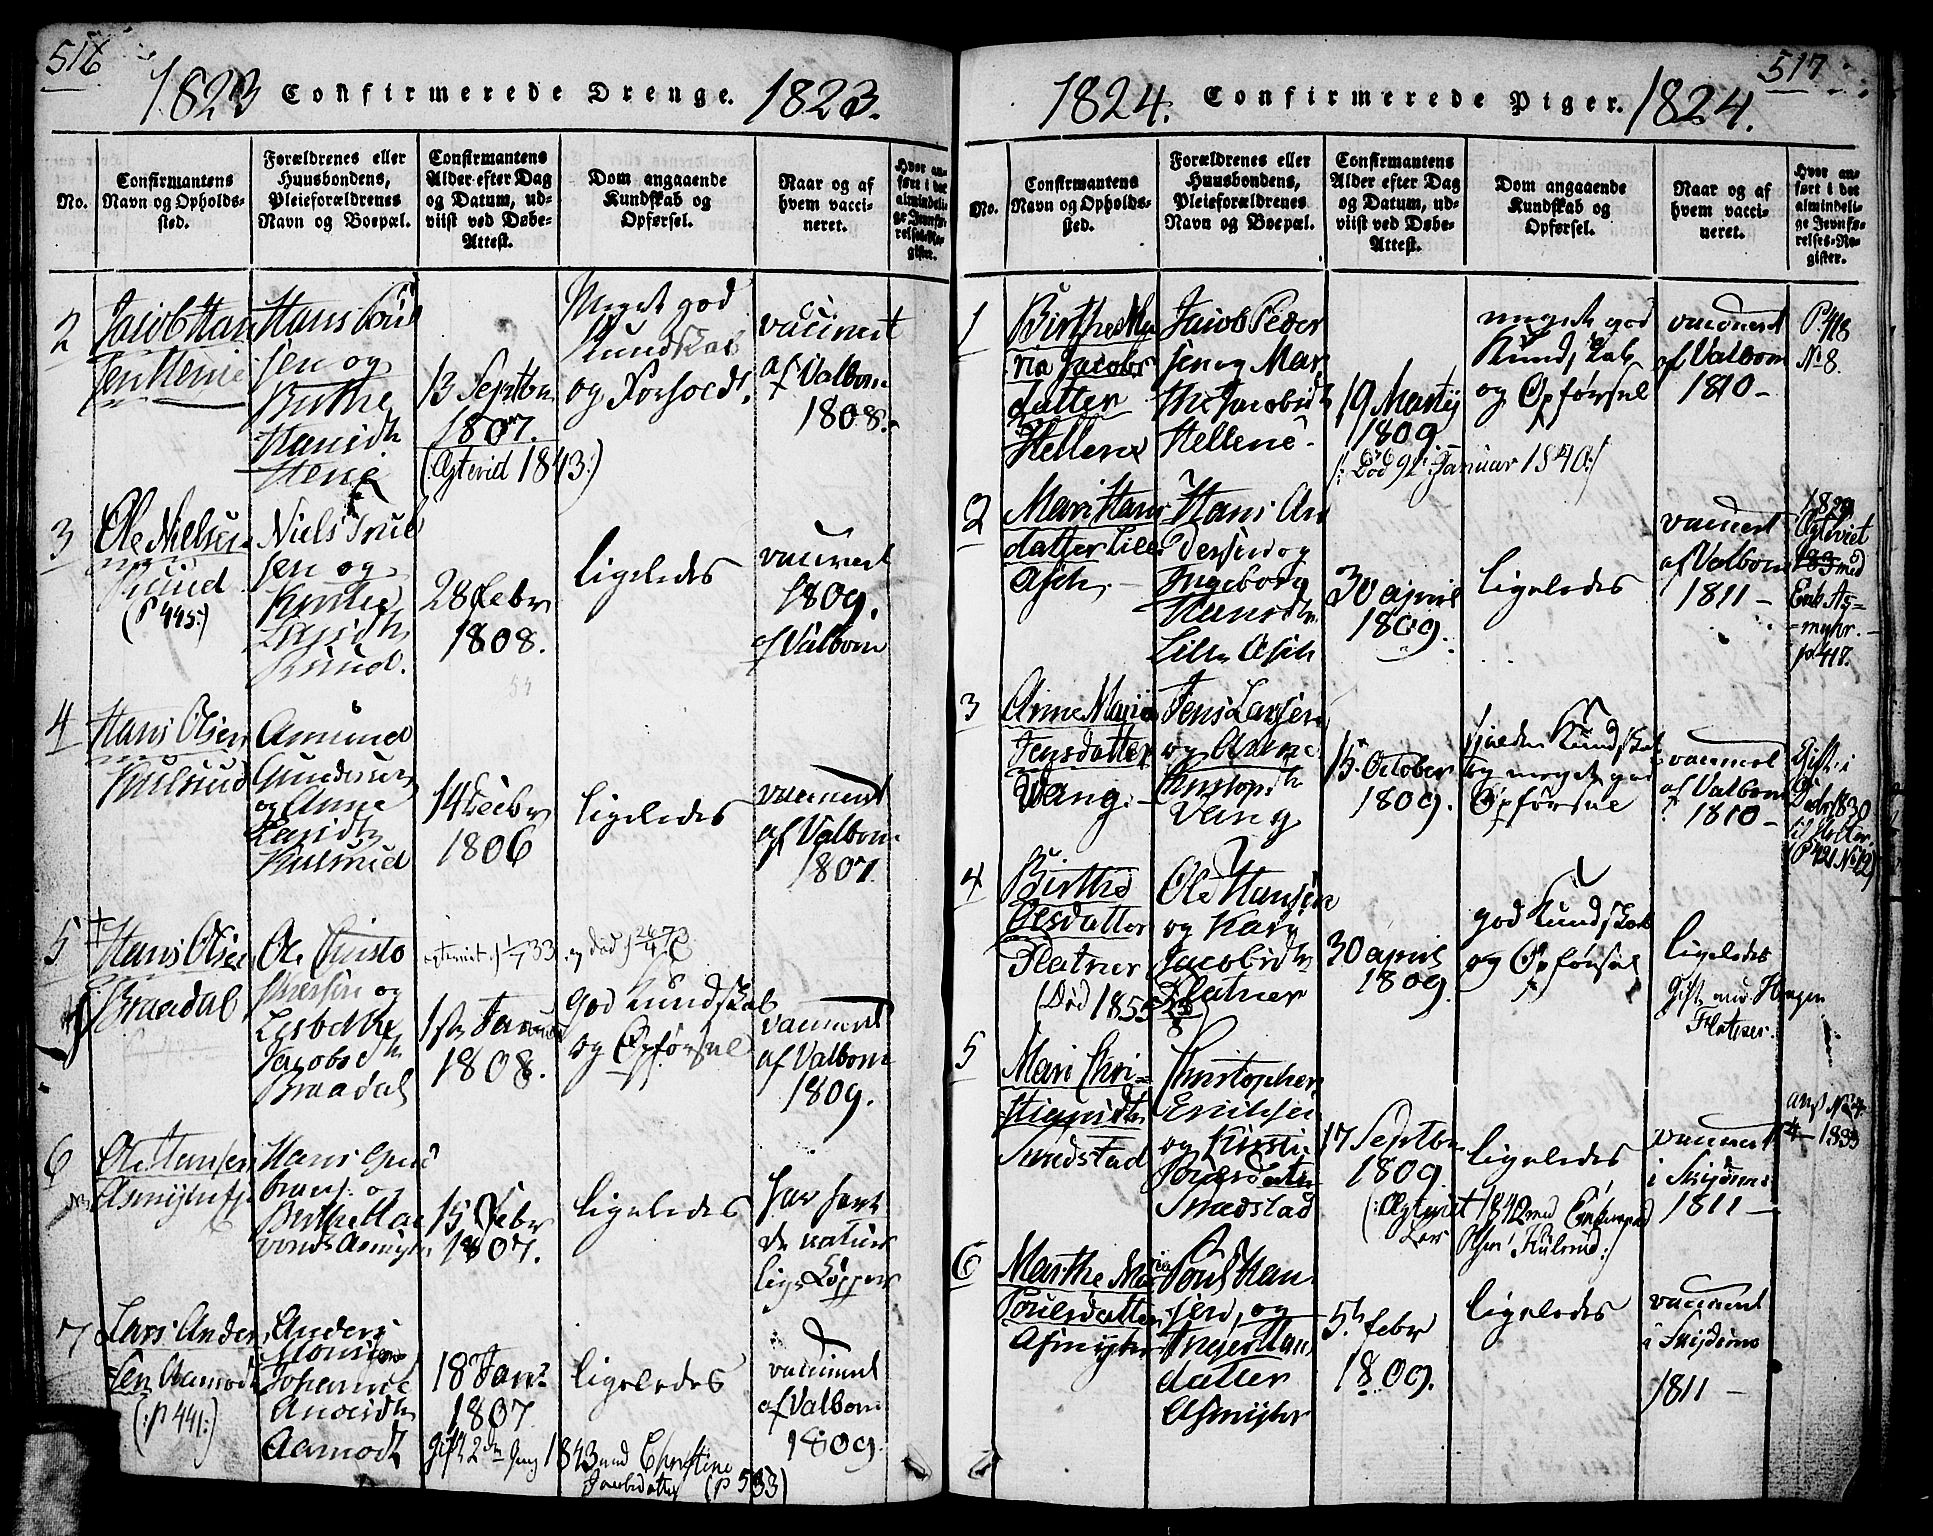 516
1823 Confirmerede Drenge. 1823.
No.
Confirmantens
Navn og Opholds-
sted.
Forældrenes eller
Huusbondens,
Pleieforældrenes
Navn og Boepæl.
Confirmantens
Alder efter Dag
og Datum, ud-
viist ved Døbe-
Attest.
Dom angaaende
Kundskab og
Opførsel.
Naar og af
hvem vacci-
neret.
Hvor an-
ført i det
almindeli-
ge Jevnfø-
relses-Re-
gister.
2
Jacob Han
sen
Hans
sen og
Birthe
Hansdtr
13 Septbr
1807.
(Ægtevid 1843:)
Meget god
Kundskab
og Forhold.
vaccineret
af Valbom
1808.
3
Ole Nielsen
(P 445:)
Niels
sen og
28 Febr
1808.
ligeledes
vaccineret
1809.
af Valbom
4
Hans Olsen
Kulsrud
Amund
Gundersen
og Anne
Larsdtr
Kulsrud
14 Decbr
1806
ligeledes
vaccineret
af Valbom
1807.
5
Hans Olsen
Braadal
Ole Christo
phersen og
Lisbethe
Jacobsdtr
Braadal
1ste Januar
1808.
god Kundskab
og Opførsel
vaccineret
af Valbom
1809.
6
Ole Hansen
Hans Gud
brans: og
Birthe Haa
vords Asmyhr
15 Febr
1807.
ligeledes
har havt
de natur
lige Kopper
7
Lars Ander
sen Aamodt
(:P 441:)
Anders
Monsen
Johanne
Andersdtr
Aamodt
18 Janr
1807
Gift 2den Juny 1843 med Christine
Jacobsdatter (P 533)
ligeledes
vaccineret
af Valbom
1809.
517
1824. Confirmerede Piger. 1824.
No.
Confirmantens
Navn og Opholds-
sted.
Forældrenes eller
Huusbondens,
Pleieforældrenes
Navn og Boepæl.
Confirmantens
Alder efter Dag
og Datum, ud-
viist ved Døbe-
Attest.
Dom angaaende
Kundskab og
Opførsel.
Naar og af
hvem vacci-
neret.
Hvor an-
ført i det
almindeli-
ge Jevnfø-
relses-Re-
gister.
1
Birthe Ma
ria Jacobs
datter
Hellene
Jacob Peder
sen og Mar
the Jacobsdtr
Hellene
19 Martij
1809
(: Død 9de Januar 1840:)
meget god
Kundskab
og Opførsel
vaccineret
af Valbom
1810 -
P. 418
No 8.
2
Mari Hans
datter Lille
Asch
Hans An
dersen og
Ingeborg
Hansdtr
Lille Asch
30 april
1809.
ligeledes
vaccineret
af Valbom
1811 -
1829
Ægteviet
183 med
Erik As-
myhr.
p 417.
3
Anne Maria
Jensdatter
Wang.
Jens Larsen
og Anne
Christophdtr
Vang
15 October
1809.
Kundskab
og meget god
Opførsel
vaccineret
af Valbom
1810 -
Gift i
1830
til Holter.
(P 421 No 12)
4
Birthe
Olsdatter
Flatner
(Død 1855
Ole Hansen
og Kari
Jacobsdtr
Flatner
30 april
1809.
god Kundskab
og Opførsel
ligeledes
Gift med Hagen
Flatner.
5
Mari Chri-
stiansdtr
Sundstad
Christopher
Eriksen
og Kirsti
Sundstad
17 Septbr
1809.
(:Ægteviet 1842 med Enkemand
Lars Kulsrud:)
ligeledes,
vaccineret
i Skidsmo
1811 -
6
Marthe Maria
Pouelsdatter
Asmyhr
Poul Han
sen, og
Inger Hans
datter
Asmyhr
5t febr
1809.
ligeledes
vaccineret
i Skidsmo
1811 -